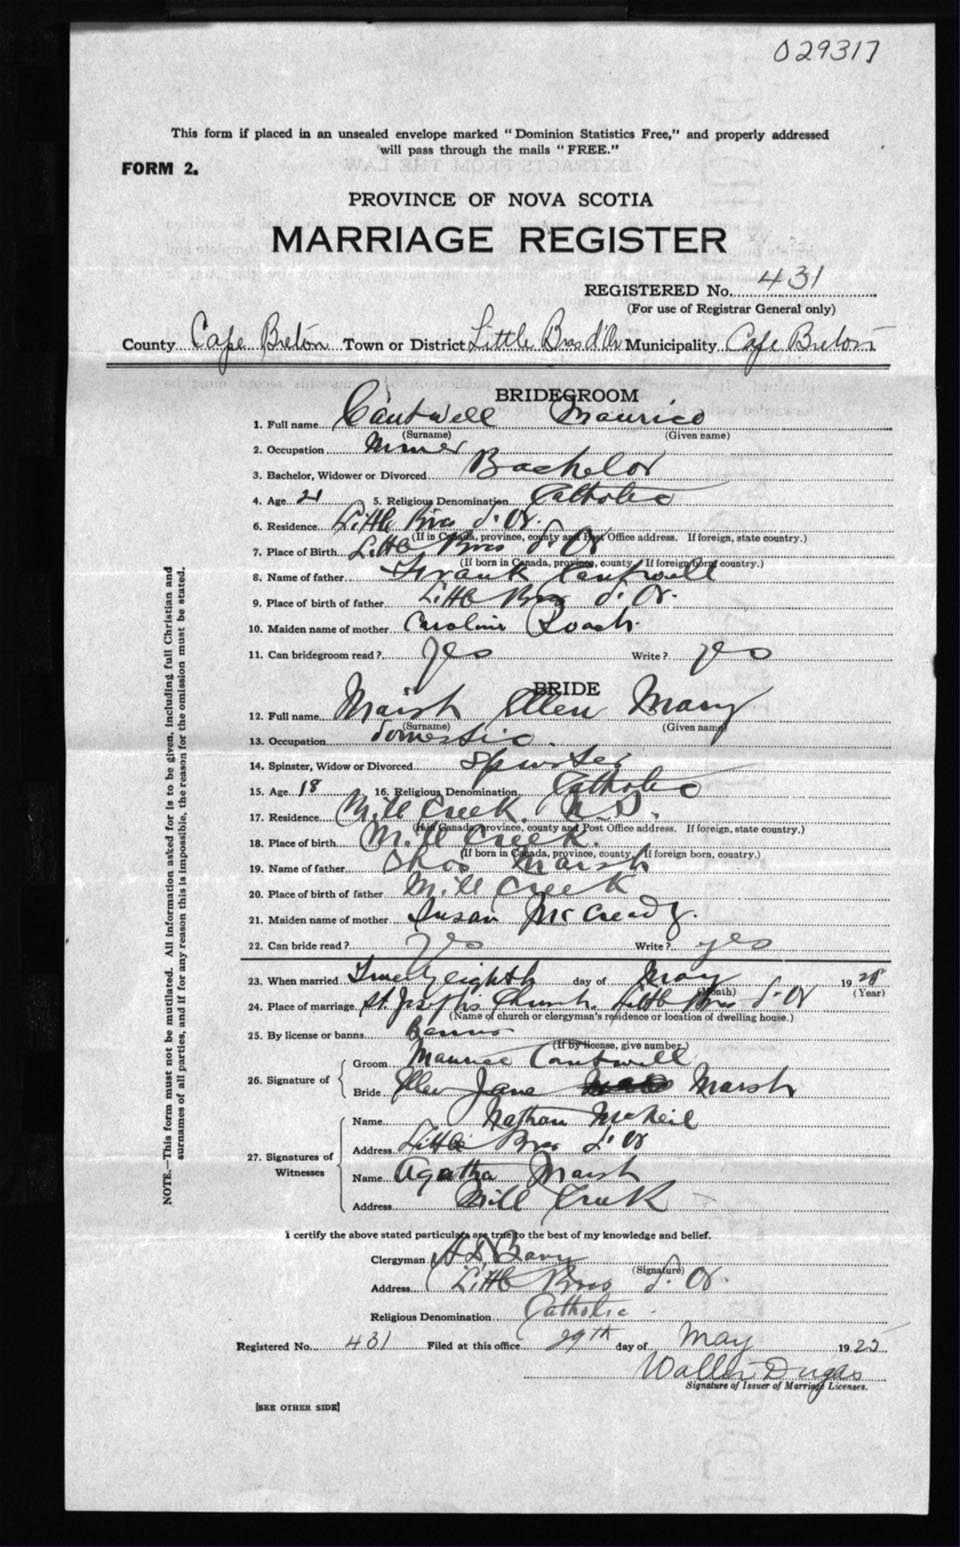 029317
This form if placed in an unsealed envelope marked "Dominion Statistics Free," and properly addressed
will pass through the mails "FREE."
FORM 2.
PROVINCE OF NOVA SCOTIA
MARRIAGE REGISTER
REGISTERED No. 431
(For use of Registrar General only)
County Cape Breton Town or District Little Bras d'Or Municipality Cape Breton
BRIDEGROOM
1. Full name Cantwell Maurice
(Surname) (Given name)
2. Occupation Miner
3. Bachelor, Widower or Divorced Bachelor
4. Age 21 5. Religious Denomination Catholic
6. Residence Little Bras d'Or.
(If in Canada, province, county and Post Office address. If foreign, state country.)
7. Place of Birth Little Bras d'Or
(If born in Canada, province, county. If foreign born, country.)
8. Name of father Frank Cantwell
9. Place of birth of father Little Bras d'Or.
10. Maiden name of mother Caroline Roach.
11. Can bridegroom read? yes Write? yes
BRIDE
12. Full name Marsh Ellen Mary
(Surname) (Given name)
13. Occupation domestic.
14. Spinster, Widow or Divorced Spinster
15. Age 18 16. Religious Denomination Catholic
17. Residence Mill Creek. N.S.
(If in Canada, province, county and Post Office address. If foreign, state country.)
18. Place of birth Mill Creek.
(If born in Canada, province, county. If foreign born, country.)
19. Name of father Thos Marsh
20. Place of birth of father Mill Creek
21. Maiden name of mother Susan McCready.
22. Can bride read? yes Write? yes
23. When married Twenty eighth day of May 1928
(Month) (Year)
24. Place of marriage St. Joseph's Church. Little Bras d'Or
(Name of church or clergyman's residence or location of dwelling house.)
25. By license or banns Banns
(If by license, give number.)
26. Signature of
Groom Maurice Cantwell
Bride Ellen Jane Marsh
27. Signatures of Witnesses
Name Nathan McNeil
Address Little Bras d'Or
Name Agatha Marsh
Address Mill Creek
I certify the above stated particulars are true to the best of my knowledge and belief.
Clergyman A.D.
(Signature)
Address Little Bras d'Or.
Religious Denomination Catholic.
Registered No. 431 Filed at this office 29th day of May 1925
Walter Dugas
Signature of Issuer of Marriage Licenses.
[SEE OTHER SIDE]
NOTE.—This form must not be mutilated. All information asked for is to be given, including full Christian and
surnames of all parties, and if for any reason this is impossible, the reason for the omission must be stated.